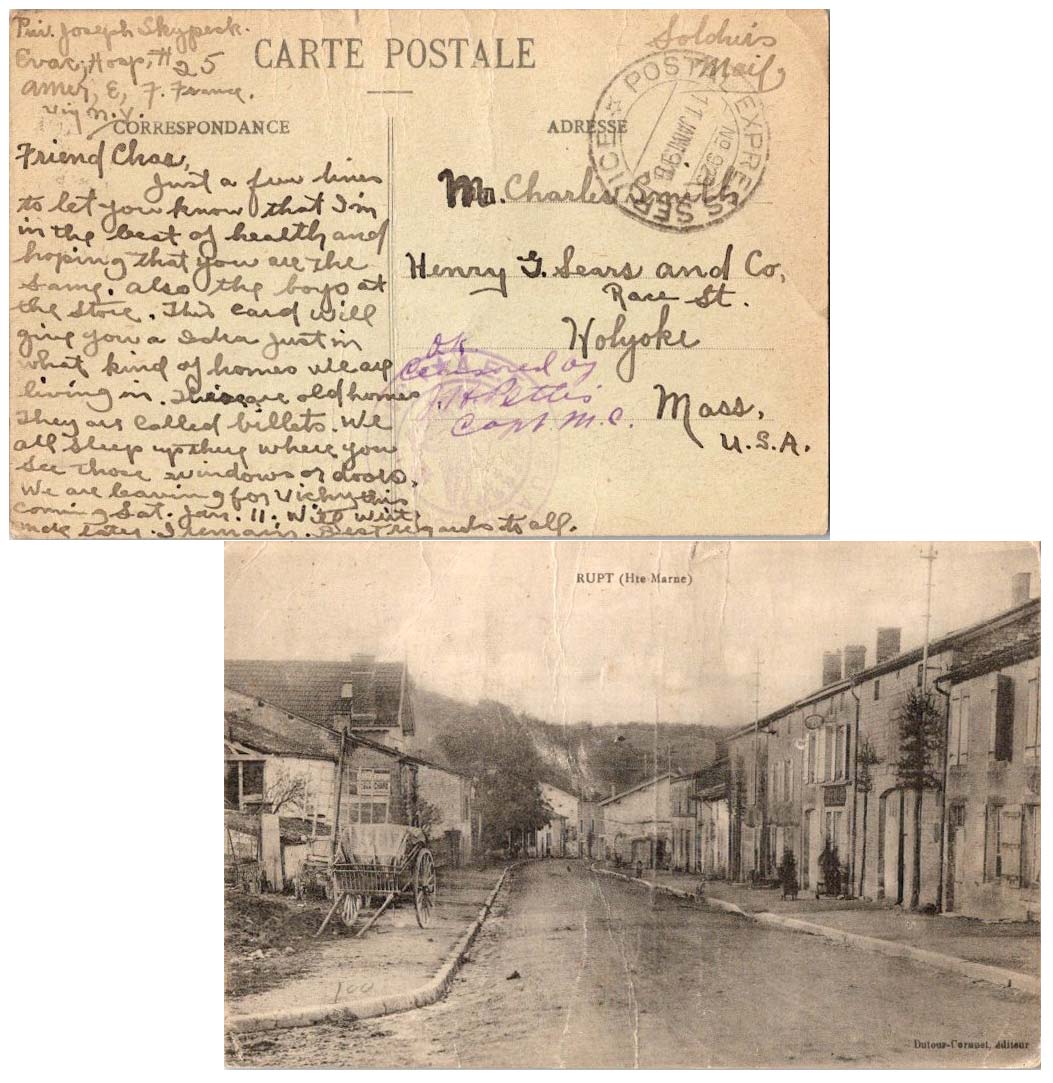 Priv. Joseph Skypeck.
Evac, Hosp, # 25
Amer, E, F. France.
Via N.Y.
CARTE POSTALE
Soldiers
Mail
CORRESPONDANCE
ADRESSE
POSTAL EXPRESS SERVICE
No. 923
11 JANV 1919
Friend Char,
Just a few lines
to let you know that I'm
in the best of health and
hoping that you are the
same. also the boys at
the store. This card will
give you a idea just in
what kind of homes we are
living in. These are old homes
They are called billets. We
all sleep up there where you
see those windows or doors,
We are leaving for Vichy this
coming Sat. Jan. 11. Will write
more later. I remain. Best regards to all.
Mr. Charles Smith
Henry G. Sears and Co,
Race St.
Holyoke
Mass,
U.S.A.
OK
Censored by
J. H. Pettis
Capt. M.C.
RUPT (Hte-Marne)
100
Dutour-Cornuet, éditeur